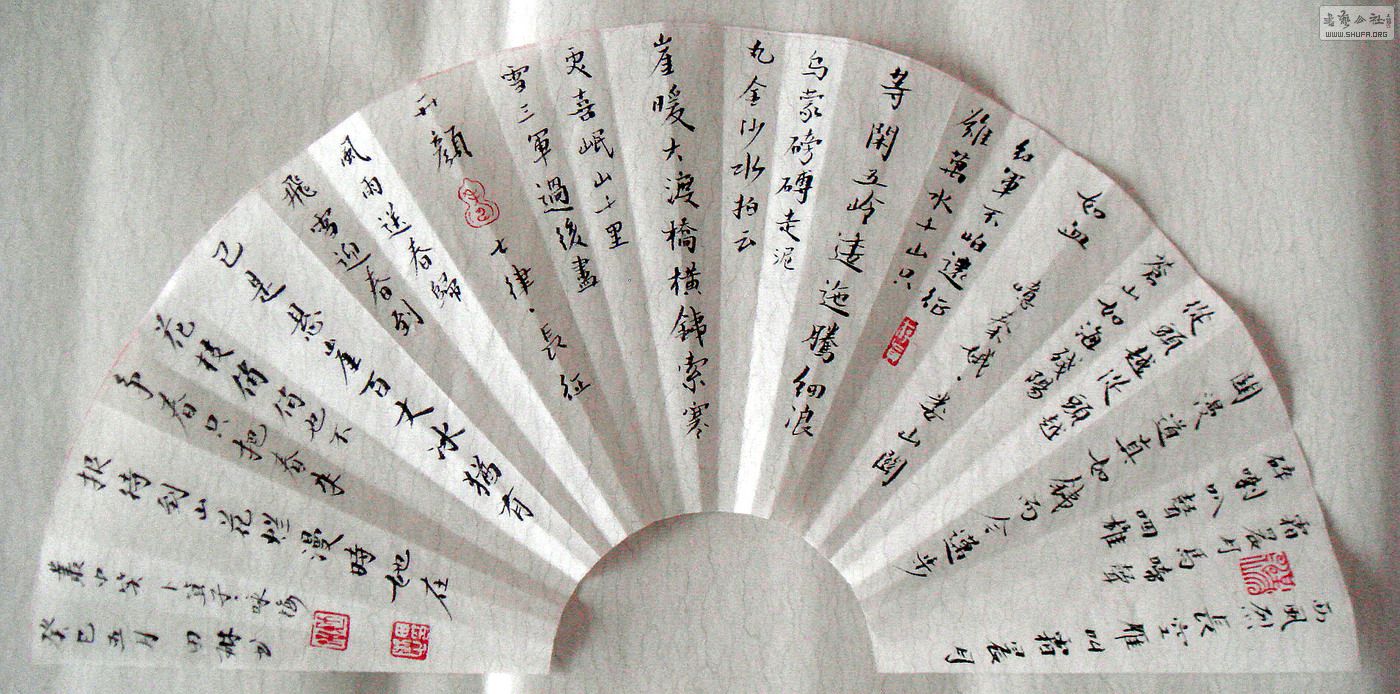 西風烈長空雁叫霜晨月
霜晨月馬蹄聲
碎喇叭聲咽雄
關漫道真如鐵而今邁步
從頭越從頭越
蒼山如海殘陽
如血
憶秦娥·婁山關
紅軍不怕遠征
難萬水千山只
等閑五岭逶迤騰細浪
乌蒙磅礴走泥
丸金沙水拍云
崖暖大渡橋橫鉄索寒
更喜岷山千里
雪三軍過後盡
开顏
七律·長征
風雨送春歸
飛雪迎春到
已是悬崖百丈冰猶有
花枝俏俏也不
争春只把春来
报待到山花烂漫時她在
叢中笑 卜算子·咏梅
癸巳五月 田林书
书艺公社
WWW.SHUFA.ORG